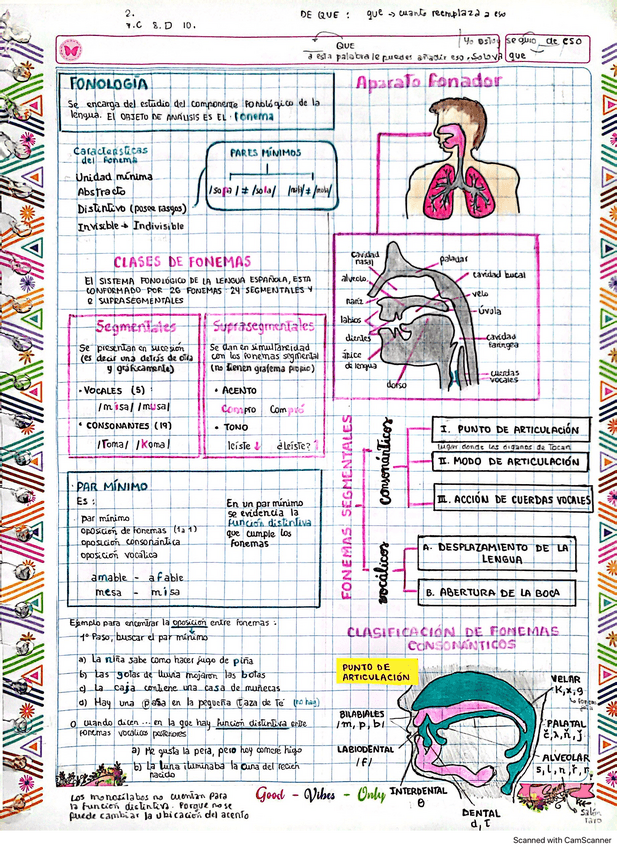 2.
7.C 8.D 10.
DE QUE : que → cuanto reemplaza a eso
QUE
a esta palabra le puedes añadir eso, solo va que
Yo estoy seguro de eso
FONOLOGÍA
Se encarga del estudio del componente fonológico de la
lengua. EL OBJETO DE ANÁLISIS ES EL fonema
Características
del fonema
Unidad mínima
Abstracto
Distintivo (posee rasgos)
Invisible → Indivisible
PARES MÍNIMOS
CLASES DE FONEMAS
El SISTEMA FONOLÓGICO DE LA LENGUA ESPAÑOLA, ESTA
CONFORMADO POR 26 FONEMAS 24 SEGMENTALES Y
2 SUPRASEGMENTALES
Segmentales
Se presentan en sucesión
(es decir una detrás de otra
y gráficamente)
• VOCALES (5) :
/misa/ /musa/
• CONSONANTES (19)
/Toma/ /Koma/
Suprasegmentales
Se dan en simultaneidad
con los fonemas segmental
(no tienen grafema propio)
• ACENTO
Compro Compró
• TONO
leíste ↓ ¿leíste? ↑
PAR MÍNIMO
Es :
par mínimo
oposición de fonemas (1 a 1)
oposición consonántica
oposición vocálica
amable - afable
mesa - misa
En un par mínimo
se evidencia la
función distintiva
que cumple los
fonemas
Ejemplo para encontrar la oposición entre fonemas :
1º Paso, buscar el par mínimo
a) La niña sabe como hacer jugo de piña
b) Las gotas de lluvia mojaron las botas
c) La caja contiene una casa de muñecas
d) Hay una posa en la pequeña taza de té (no hay)
o cuando dicen ... en la que hay función distintiva entre
fonemas vocálicos posteriores
a) Me gusta la pera, pero hoy comeré higo
b) La luna iluminaba la cuna del recién
nacido
Los monosílabos no cuentan para
la función distintiva. Porque no se
puede cambiar la ubicación del acento
Good - Vibes - Only
Aparato fonador
cavidad
nasal
alveolo
nariz
labios
dientes
ápice
de lengua
dorso
paladar
cavidad bucal
velo
úvula
cavidad
faríngea
cuerdas
vocales
FONEMAS SEGMENTALES
Consonánticos
I. PUNTO DE ARTICULACIÓN
lugar donde los órganos se tocan
II. MODO DE ARTICULACIÓN
III. ACCIÓN DE CUERDAS VOCALES
vocálicos
A. DESPLAZAMIENTO DE LA
LENGUA
B. ABERTURA DE LA BOCA
CLASIFICACIÓN DE FONEMAS
CONSONÁNTICOS
PUNTO DE
ARTICULACIÓN
BILABIALES
/m, p, b/
LABIODENTAL
/f/
INTERDENTAL
θ
DENTAL
d, t
VELAR
K, x, g
PALATAL
ALVEOLAR
Scanned with CamScanner